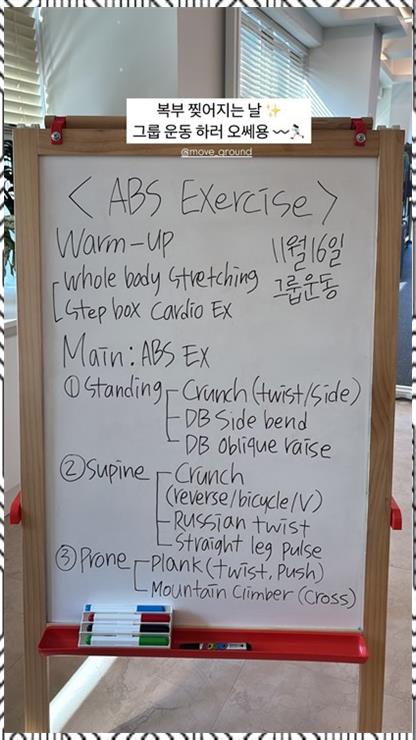 복부 찢어지는 날 ✨
그룹 운동 하러 오쎄용 〰🏃🏻
@move_ground
< ABS Exercise >
Warm-up
11월 16일
그룹운동
whole body Stretching
Step box Cardio Ex
Main : ABS EX
① Standing
Crunch (twist/side)
DB Side bend
DB oblique raise
② Supine
Crunch
(reverse/bicycle/V)
Russian twist
Straight leg pulse
③ Prone
Plank (twist, push)
Mountain Climber (cross)